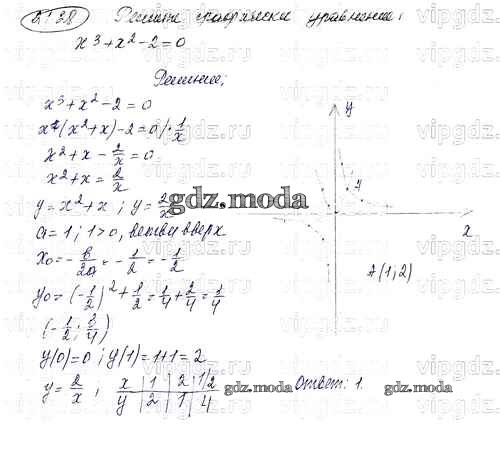 21.28 Решить графически уравнение:
x³ + x² - 2 = 0
Решение:
x³ + x² - 2 = 0
x(x² + x) - 2 = 0 | · 1/x
x² + x - 2/x = 0
x² + x = 2/x
y = x² + x ; y = 2/x
a = 1 ; 1 > 0, ветви вверх
x₀ = - b/2a = - 1/2 = - 1/2
y₀ = (- 1/2)² + 1/2 = 1/4 + 2/4 = 1/4
(- 1/2 ; 3/4)
y(0) = 0 ; y(1) = 1 + 1 = 2
y = 2/x ; x | 1 | 2 | 1/2
y | 2 | 1 | 4
y
A
x
A(1; 2)
Ответ: 1.
gdz.moda
gdz.moda
gdz.moda
vipgdz.ru